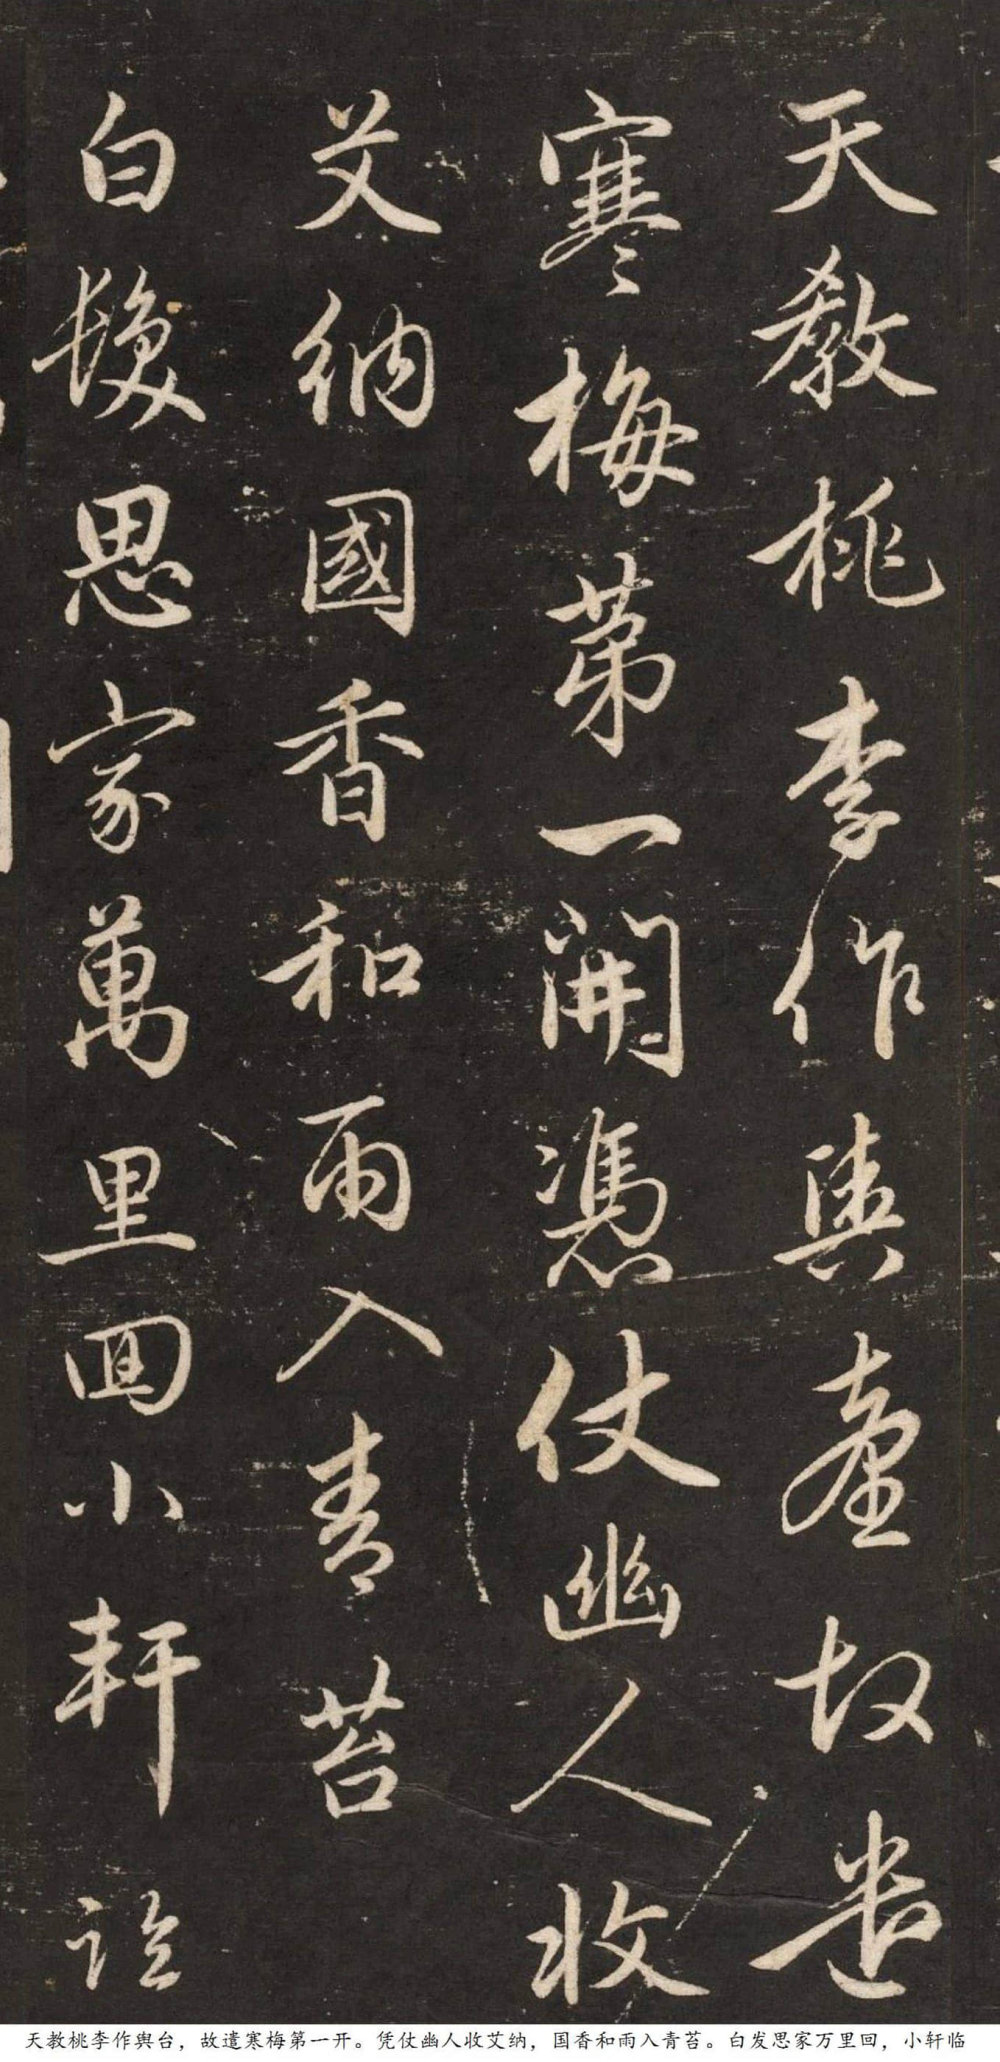 天教桃李作輿臺故遣
寒梅第一開憑仗幽人收
艾納國香和雨入青苔
白髮思家萬里回小軒臨
天教桃李作舆台，故遣寒梅第一开。凭仗幽人收艾纳，国香和雨入青苔。白发思家万里回，小轩临